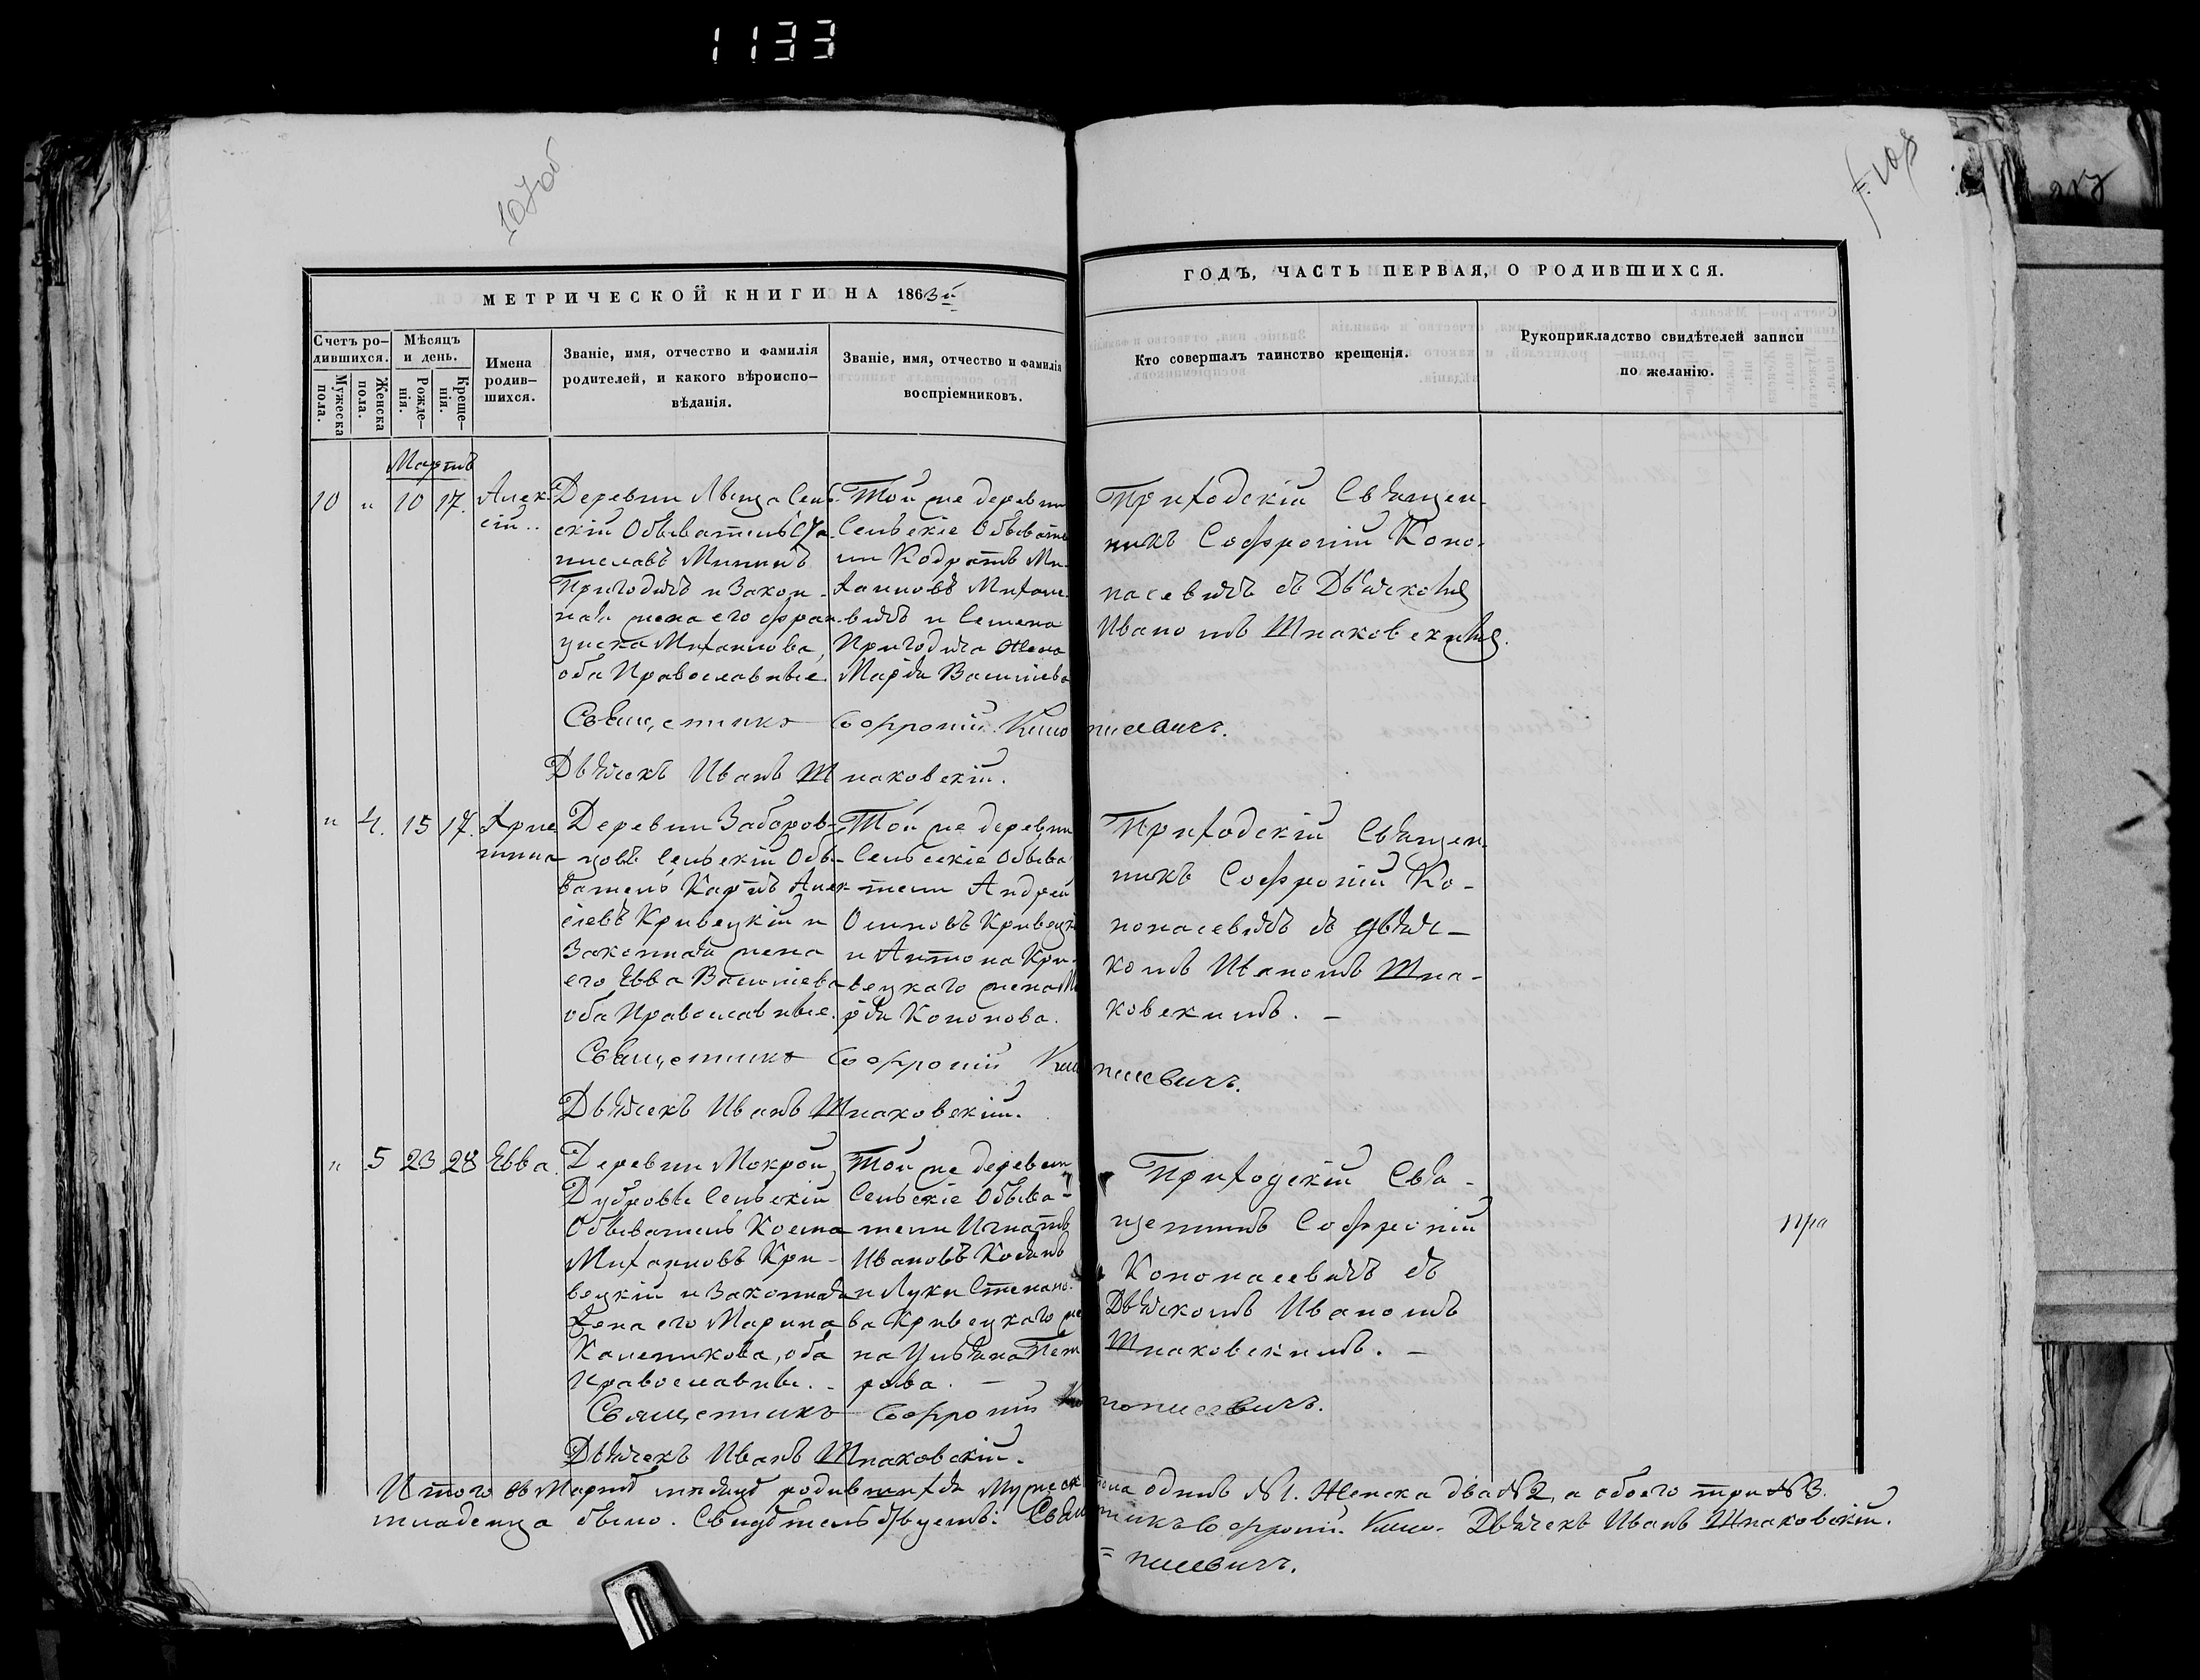 1133
107об
108
МЕТРИЧЕСКОЙ КНИГИ НА 1863й
ГОДЪ, ЧАСТЬ ПЕРВАЯ, О РОДИВШИХСЯ.
Счетъ ро-
дившихся.
Мужеска
пола.
Женска
пола.
Мѣсяцъ
и день.
Рожде-
нія.
Креще-
нія.
Имена
родив-
шихся.
Званіе, имя, отчество и фамилія
родителей, и какого вѣроиспо-
вѣданія.
Званіе, имя, отчество и фамилія
воспріемниковъ.
Кто совершалъ таинство крещенія.
Рукоприкладство свидѣтелей записи
по желанію.
Мартъ
10 " 10 17.
Алек-
сій..
Деревни Лвица Сель-
скій Обыватель
Мининъ
Пригодичъ и Закон-
ная жена его Фран-
циска Михаилова,
оба Православные
Той же деревни
Сельскіе Обывате
ли Кодратъ Ми-
хаиловъ Михале-
вичъ и Семена
Пригодича Жена
Марѳа Василіева
Приходскій Священ-
никъ Софроній Коно-
пасевичъ съ Дьячкомъ
Иваномъ Шпаковскимъ.
Священникъ Софроній Конопасевичъ.
Дьячекъ Иванъ Шпаковскій.
" 4. 15 17.
Хрис
тина
Деревни Заборов-
цовъ Сельскій Обы-
ватель Карпъ Алек-
сіевъ Кривецкій и
Законная жена
его Евва Василіева
оба Православные.
Той же деревни
Сельскіе Обыва
тели Андрей
Осиповъ Кривецкі
и Антона Кри-
вецкаго жена Ма
рѳа Кононова.
Приходскій Священ-
никъ Софроній Ко-
нопасевичъ съ дьяч-
комъ Иваномъ Шпа-
ковскимъ. —
Священникъ Софроній Конопасевичъ.
Дьячекъ Иванъ Шпаковскій.
" 5 23 28
Евва.
Деревни Мокрой
Дубровы Сельскій
Обыватель Косма
Михаиловъ Кри-
вецкій и Законная
Жена его Марина
Калетикова, оба
Православны. -
Той же деревни
Сельскіе Обыва-
тели Игнатъ
Ивановъ
и Луки Степано-
ва Кривецкаго же
на Ульяна Пет
рова. —
Приходскій Свя-
щенникъ Софроній
Конопасевичъ съ
Дьячкомъ Иваномъ
Шпаковскимъ. —
пра
Священникъ Софроній Конопасевичъ.
Дьячекъ Иванъ Шпаковскій.
Итого въ Мартѣ мѣсяцѣ родившихся Мужеска пола одинъ №1. Женска два №2, а обоего три №3.
младенца было. Свидѣтельствуемъ: Священникъ Софроній Коно- Дьячекъ Иванъ Шпаковскій.
= пасевичъ.